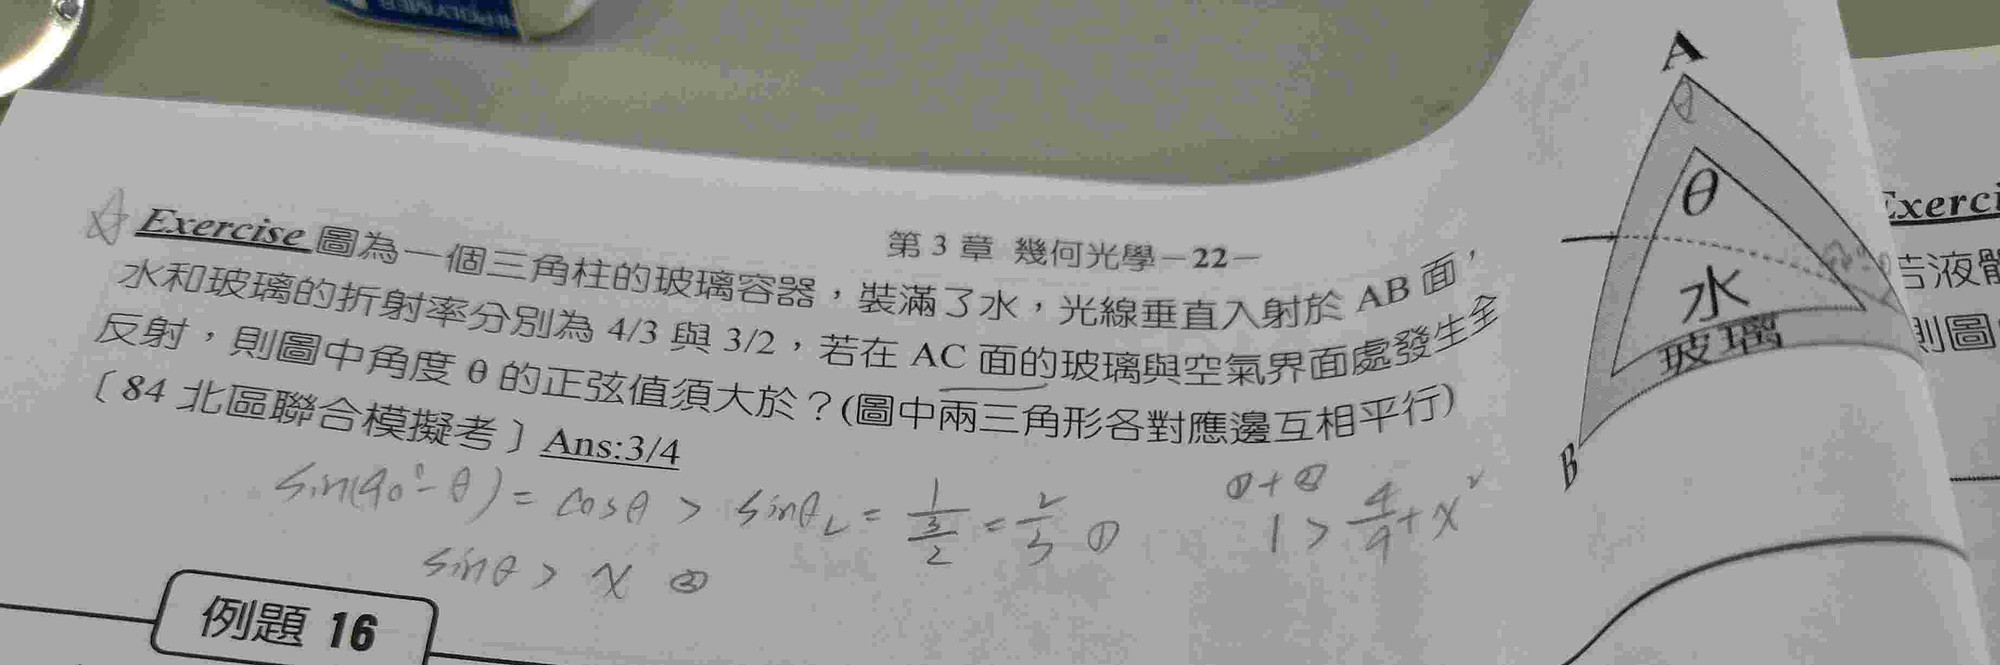 第 3 章 幾何光學－22－
Exercise 圖為一個三角柱的玻璃容器，裝滿了水，光線垂直入射於 AB 面，
水和玻璃的折射率分別為 4/3 與 3/2，若在 AC 面的玻璃與空氣界面處發生全
反射，則圖中角度 θ 的正弦值須大於？(圖中兩三角形各對應邊互相平行)
〔84 北區聯合模擬考〕Ans:3/4
sin(90°-θ) = cosθ > sinθL = 1/(3/2) = 2/3 ①
sinθ > x ②
①+②
1 > 4/9 + x²
例題 16
A
θ
θ
水
玻璃
B
Exerci
若液體
則圖